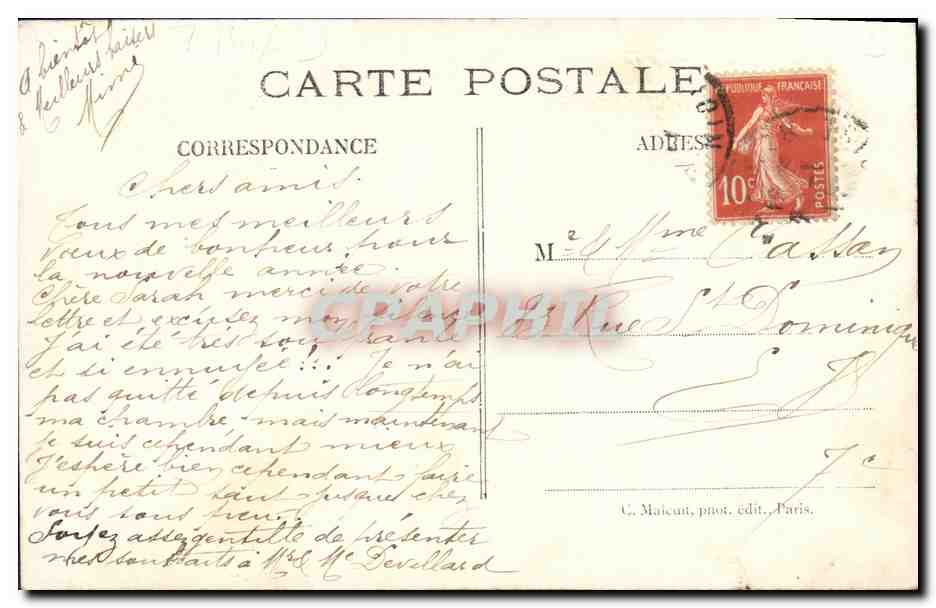 A bientôt
& Meilleurs baisers
Mimi
CARTE POSTALE
CORRESPONDANCE
Chers amis.
Tous mes meilleurs
vœux de bonheur pour
la nouvelle année.
Chère Sarah merci de votre
lettre et excusez mon silence
J'ai été très souffrante
et si ennuyée!!. Je n'ai
pas quitté depuis longtemps
ma chambre mais maintenant
je suis cependant mieux
J'espère bien cependant faire
un petit saut jusque chez
vous sous peu..
Soyez assez gentille de présenter
mes souhaits à Mr & Me Devillard
ADRESSE
RÉPUBLIQUE FRANÇAISE
10c
POSTES
Mr & Mme Cassan
Rue St Dominique
7e
C. Malcuit, phot. édit., Paris.
CPAPHIL